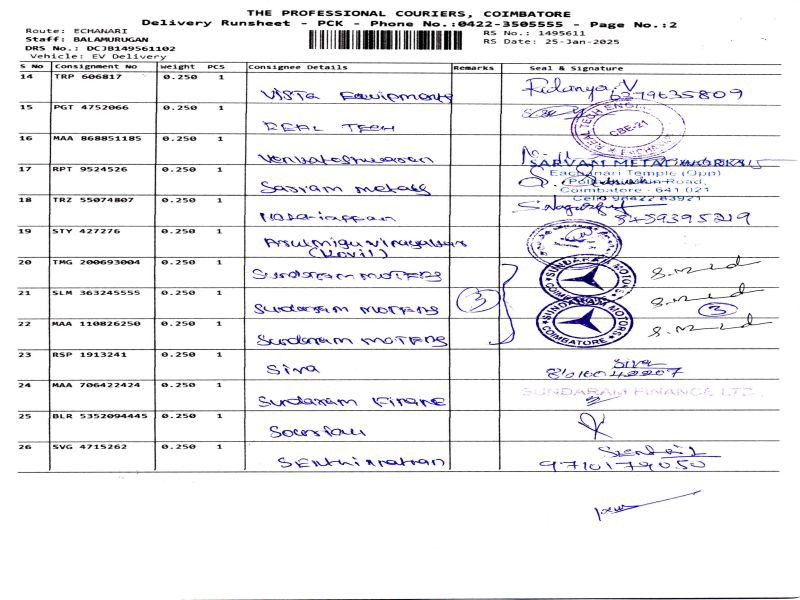 THE PROFESSIONAL COURIERS, COIMBATORE
Delivery Runsheet - PCK - Phone No.:0422-3505555 - Page No.:2
Route: ECHANARI
Staff: BALAMURUGAN
DRS No.: DCJB149561102
Vehicle: EV Delivery
RS No.: 1495611
RS Date: 25-Jan-2025
S No Consignment No Weight PCS Consignee Details Remarks Seal & Signature
14 TRP 606817 0.250 1 Vista Equipments
15 PGT 4752066 0.250 1 REAL TECH CBE-21
16 MAA 868851185 0.250 1 Venkateshwaran
17 RPT 9524526 0.250 1 Sarvam metals SARVAM METAL WORKS
Eachanari Temple (Opp)
Coimbatore - 641 021
18 TRZ 55074807 0.250 1
19 STY 427276 0.250 1 Arulmigu Vinayakar
(Kovil)
20 TMG 200693004 0.250 1 Sundaram MOTERS SUNDARAM MOTORS COIMBATORE
21 SLM 363245555 0.250 1 Sundaram MOTERS 3 3
22 MAA 110826250 0.250 1 Sundaram MOTERS SUNDARAM MOTORS COIMBATORE
23 RSP 1913241 0.250 1 Siva Siva
24 MAA 706422424 0.250 1 Sundaram Finane SUNDARAM FINANCE LTD.,
25 BLR 5352094445 0.250 1
26 SVG 4715262 0.250 1 Senthil
9710179050